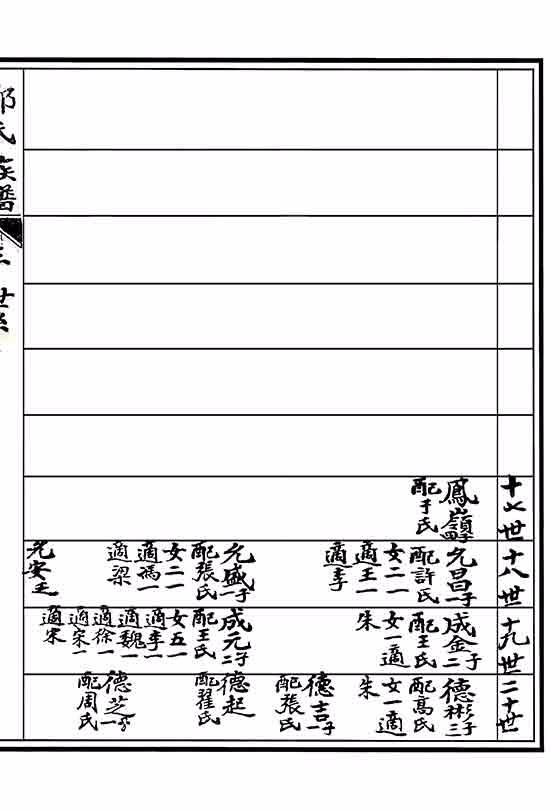 十七世
鳳嶺
配于氏
十八世
允昌一子
配許氏
女二一
適王一
適李
允盛一子
配張氏
女二一
適馮一
適梁
允安
十九世
成金二子
配王氏
女一適
朱
成元二子
配王氏
女五一
適李一
適魏一
適徐一
適宋一
適宋
二十世
德彬三子
配高氏
女一適
朱
德吉一子
配張氏
德起
配翟氏
德芝
配周氏
氏族譜
世系